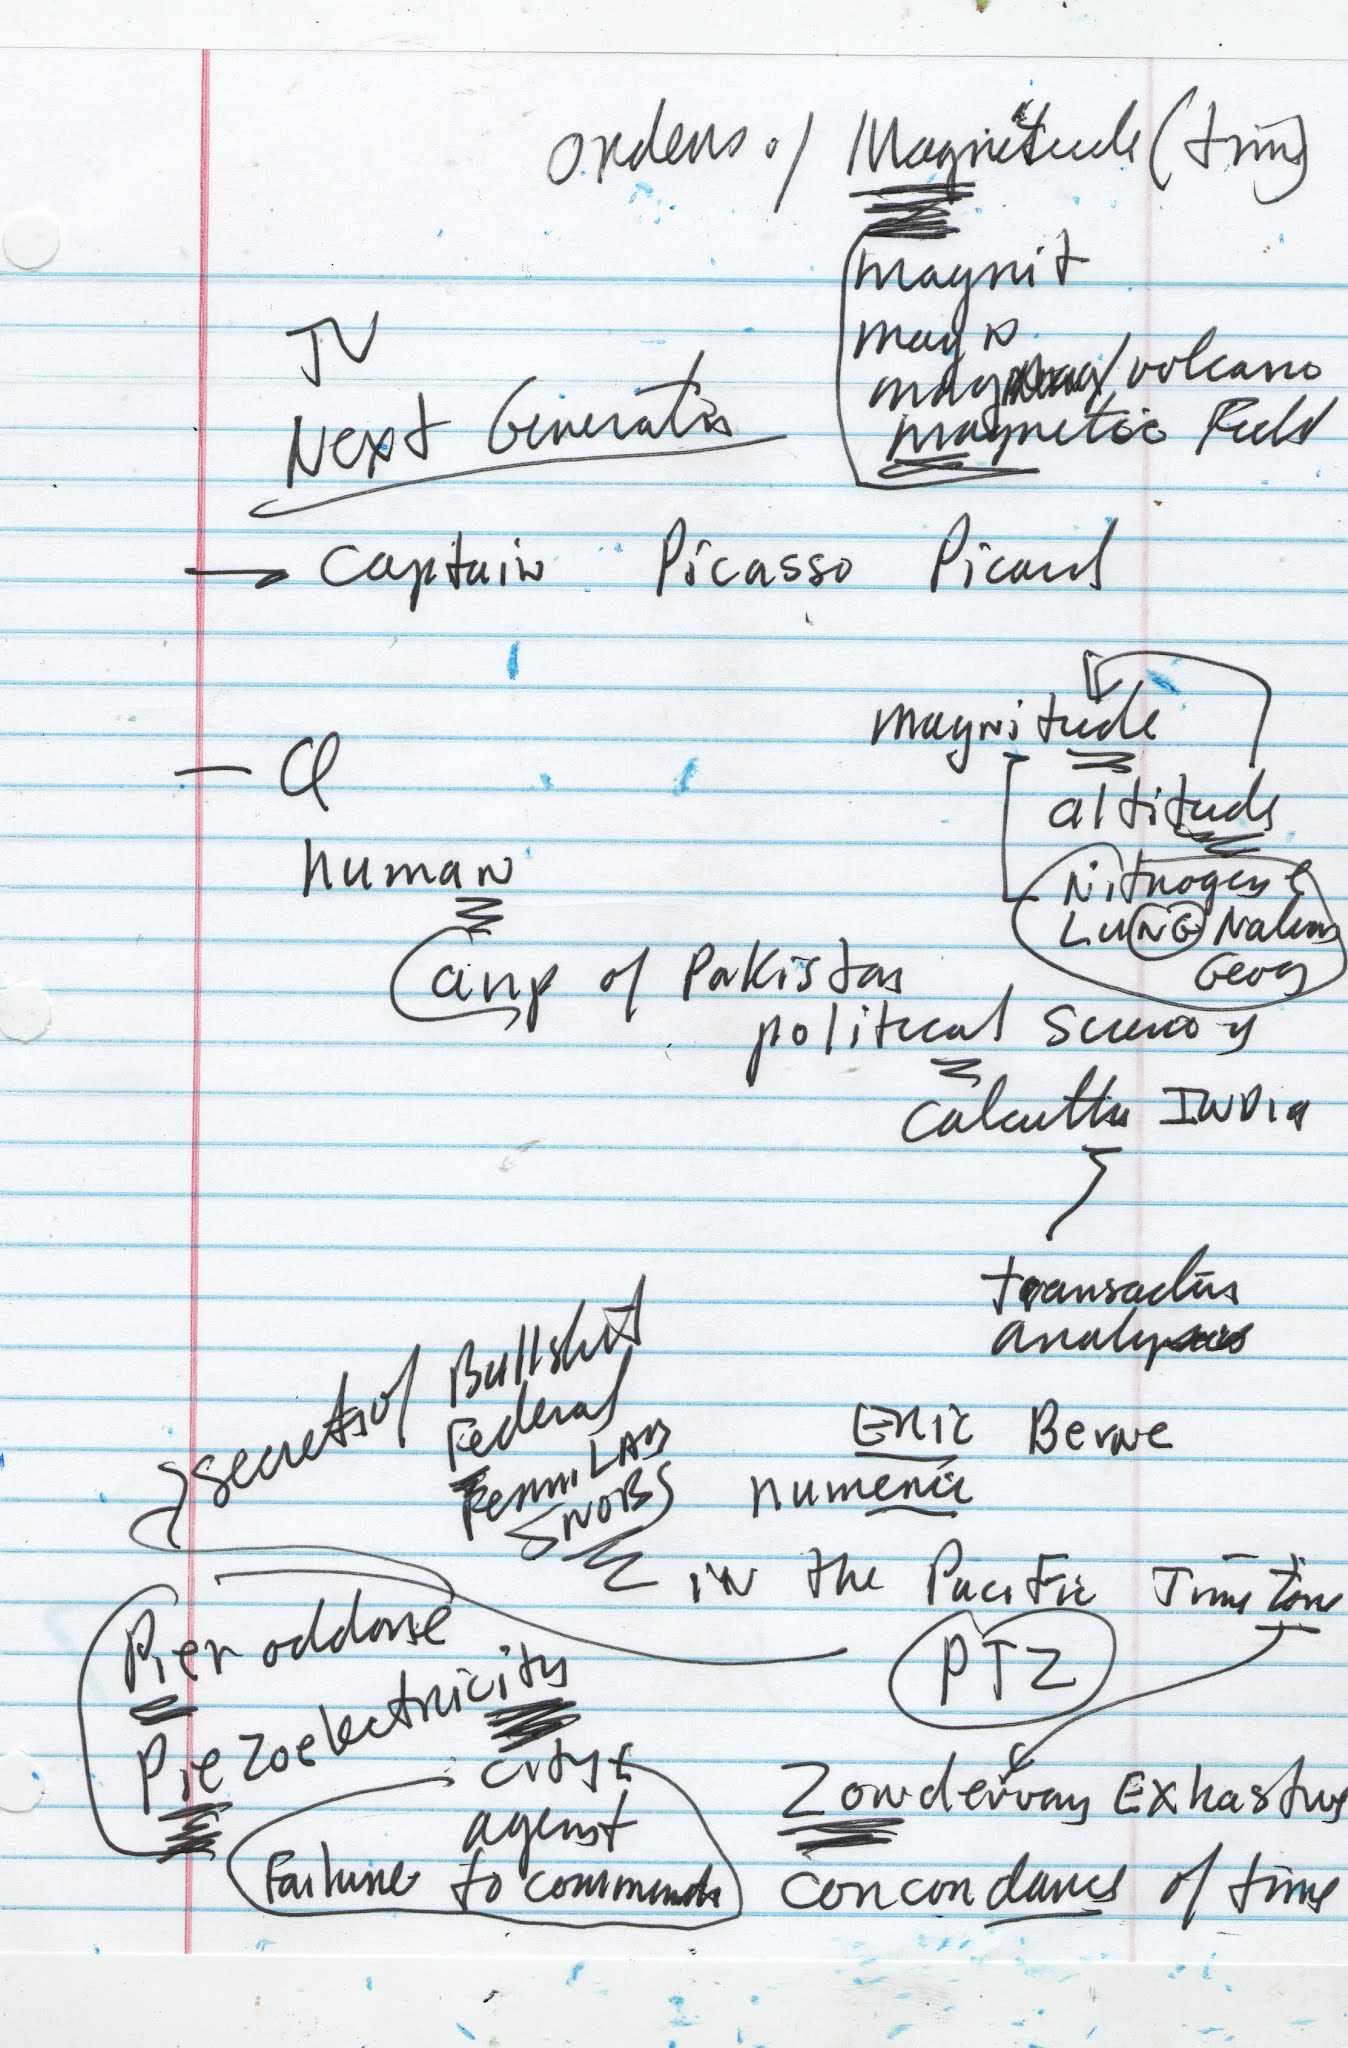 orders of Magnitude (time)
magnit
mag
mag /volcano
magnetic Field
TV
Next Generation
Captain Picasso Picard
magnitude
Q
altitude
human
Nitrogen &
LUNG
Geog
of Pakistan
political
Calcutta INDIA
analysis
secrets of Bullshit
Federal
SNOBS
Eric Berne
numeric
in the Pacific Time Zone
PTZ
Pier
Piezoelectricity
city &
agent
Failure to command
Zondervan
concordance of time